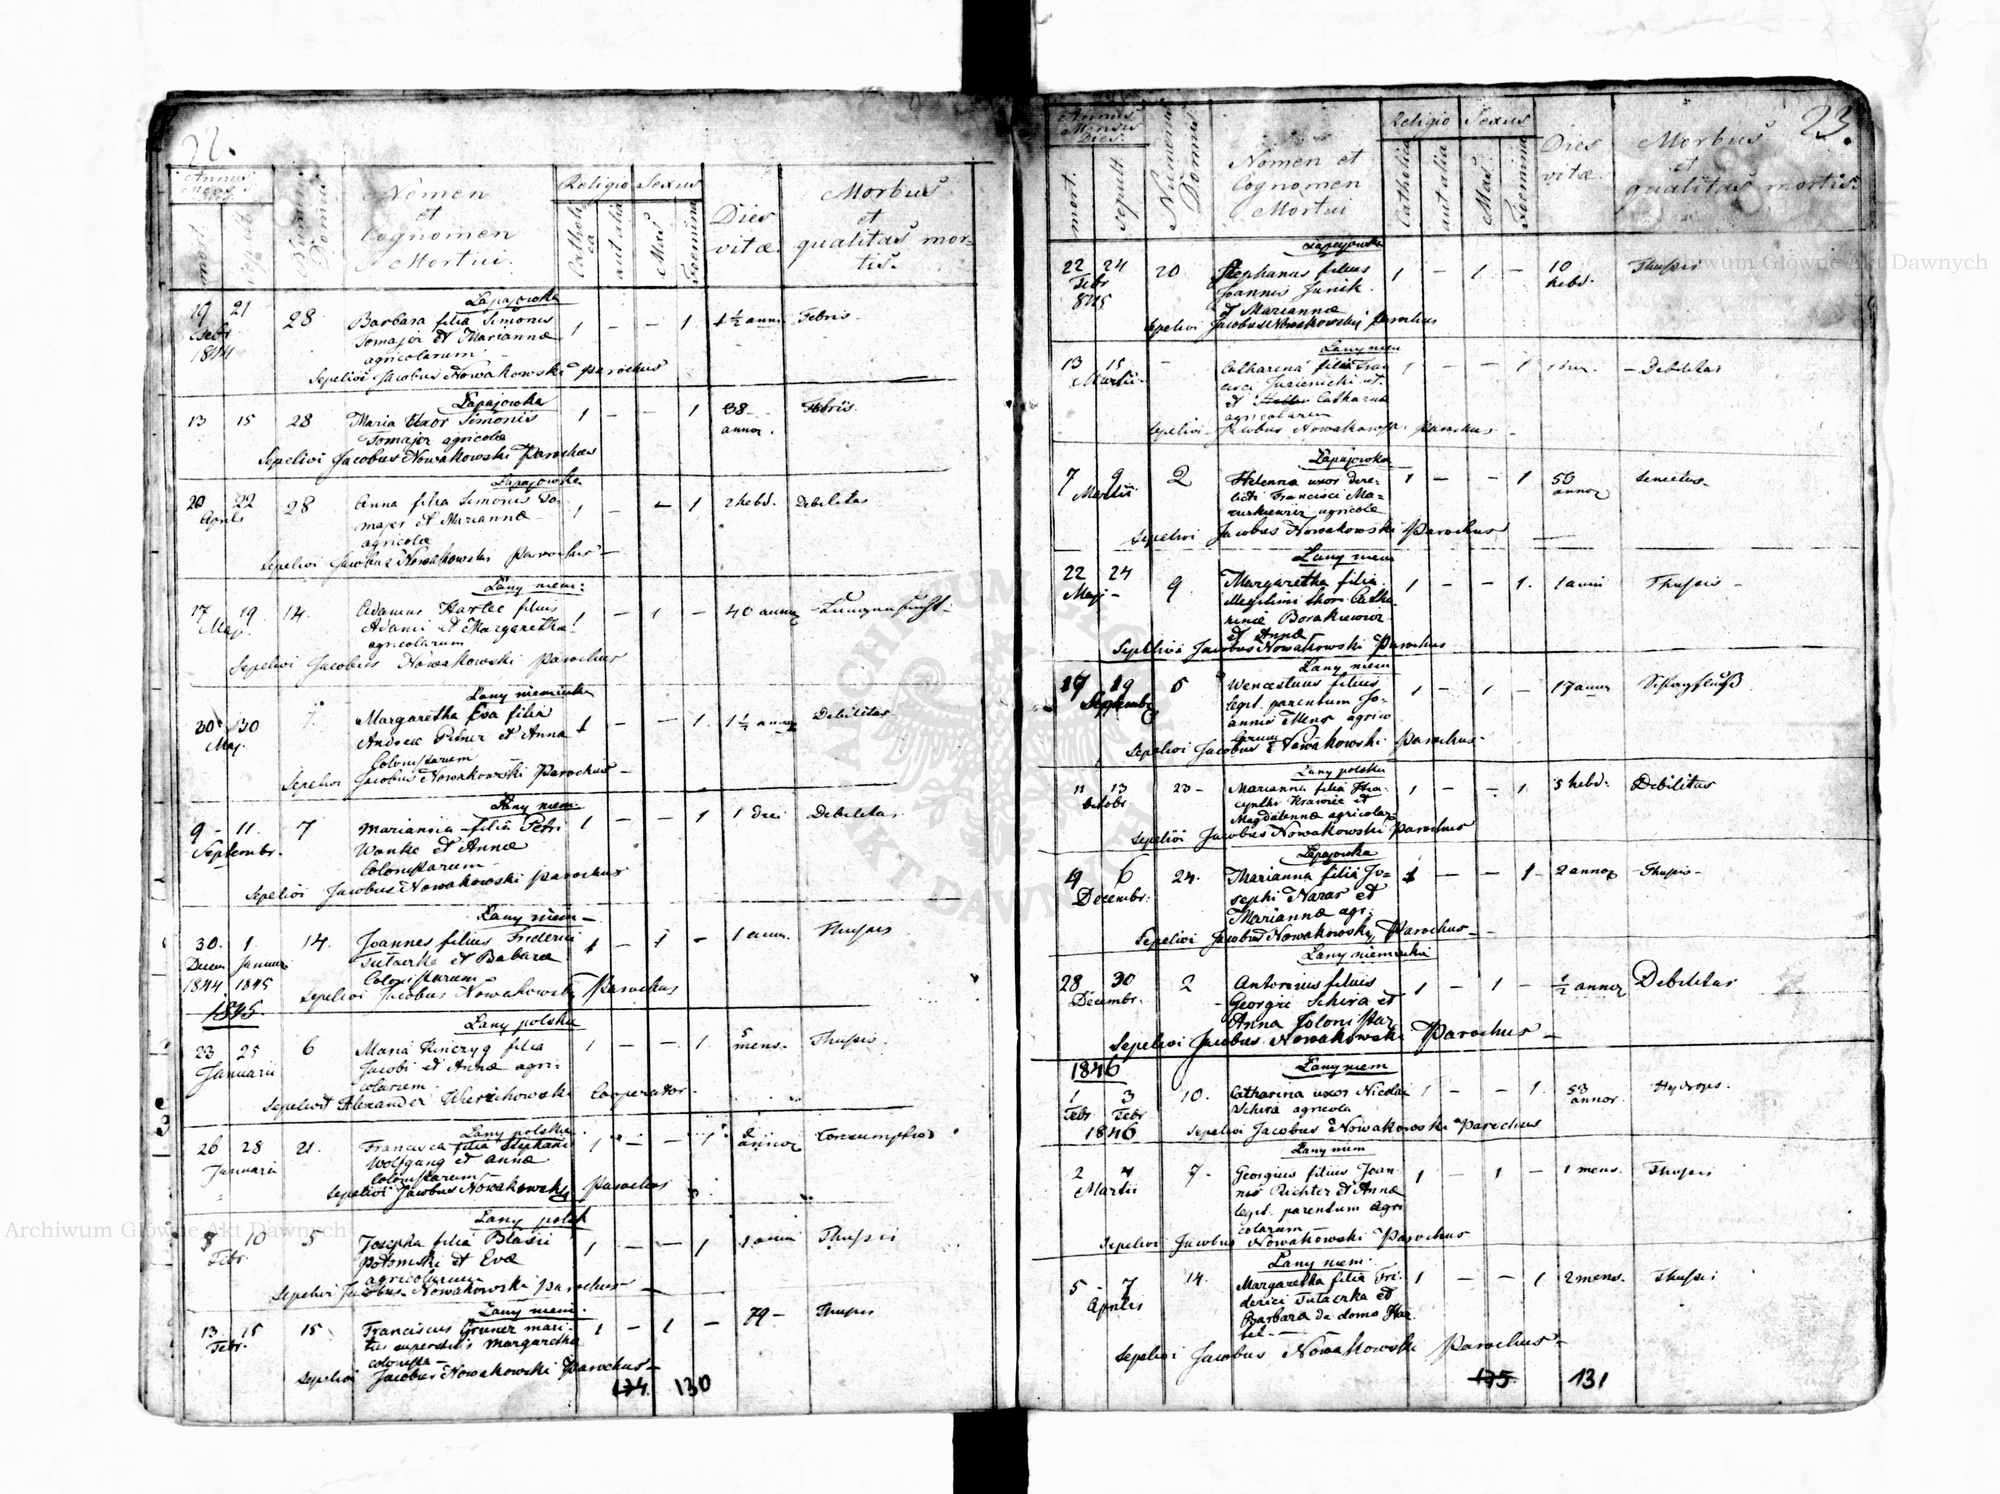 22.
Annus
Mensis
Dies
mort.
sepult.
Numerus
Domus
Nomen
et
Cognomen
Mortui.
Religio
Catholi
ca
aut alia
Sexus
Mas
Foemina
Dies
vitæ
Morbus
et
qualitas mor-
tis.
Łapajowka
19 21 28 Barbara filia Simonis 1 - - 1 1½ anni Febris
1844 Tomajer et Mariannæ
agricolarum
Sepelivi Jacobus Nowakowski Parochus
Łapajowka
13 15 28 Maria Uxor Simonis 1 - - 1 38 Febris.
Tomajer agricolæ annor.
Sepelivi Jacobus Nowakowski Parochus
Łapajowka
20 22 28 Anna filia Simonis To- 1 - - 1 2 hebd. Debilitas
Aprils majer et Mariannæ
agricolæ
Sepelivi Jacobus Nowakowski Parochus
Łany niem:
17 19 14. Adamus Hartle filius 1 - 1 - 40 annor Lungensucht
Maj. Adami et Margaretha
agricolarum
Sepelivi Jacobus Nowakowski Parochus
Łany niemiecka
30 30 7 Margaretha Eva filia 1 - - 1 1½ annor Debilitas
Maj. Andreæ et Anna
Colonistarum
Sepelivi Jacobus Nowakowski Parochus
Łany niem.
9 - 11. 7 Marianna filia Petri 1 - - 1 1 diei Debilitas
Septembr. Wanke et Annæ
Colonistarum
Sepelivi Jacobus Nowakowski Parochus
Łany niem
30. 1. 14. Joannes filius Friderici 1 - 1 - 1 ann. Thussis
Decem Januar et Babaræ
1844 1845 Colonistarum
Sepelivi Jacobus Nowakowski Parochus
1845
Łany polskie
23 25 6 Maria filia 1 - - 1 5 Thussis
Januarii Jacobi et Annæ agri- mens.
colarum
Sepelivit Alexander Cooperator
Łany polskie
26 28 21. Francisca filia Stephani 1 - - 1 2 Consumptio
Januarii Wolfgang et Annæ annor
Colonistarum
Sepelivi Jacobus Nowakowski Parochus
Łany polsk
8 10 5 Josepha filia Blasii 1 - - 1 1 anni Thussis
Febr. Potomski et Evæ
agricolarum
Sepelivi Jacobus Nowakowski Parochus
Łany niem.
13 15 15 Franciscus Gruner mari- 1 - 1 - 79 - Thussis
Febr. tus superstitis Margaretha
colonista
Sepelivi Jacobus Nowakowski Parochus
174 130
23.
Annus
Mensis
Dies.
mort.
Sepult.
Numerus
Domus
Nomen et
Cognomen
Mortui
Religio
Catholica
aut alia
Sexus
Mas
Foemina
Dies
vitæ
Morbus
et
qualitas mortis.
Łapajowka
22 24 20 Stephanus filius 1 - 1 - 10 Thussis
Febr Joannis Junik hebd.
1845 et Mariannæ
Sepelivi Jacobus Nowakowski Parochus
Łany niem
13 15 - Catharina filia Fran 1 - - 1 Debilitas
Martii cisci et
et Catharina
agricolarum
Sepelivi Jacobus Nowakowski Parochus
Łapajowka
7 9 2 Helenna uxor dere- 1 - - 1 50 Senectus
Martii licti Francisci Ma- annor
zurkiewicz agricola
Sepelivi Jacobus Nowakowski Parochus
Łany niem
22 24 9 Margaretha filia 1 - - 1. 1 anni Thussis
Maji thori Catha
rinæ Borakiewicz
et Annæ
Sepelivi Jacobus Nowakowski Parochus
Łany niem
17 19 5 Wenceslaus filius 1 - 1 - 17 annor Schlagfluß
Septembr legt. parentum Jo-
annis Mens agrico
larum
Sepelivi Jacobus Nowakowski Parochus
Łany polska
11 13 23 - Marianna filia Hia- 1 - - 1 5 hebd. Debilitas
Octobr cynthi Krawiec et
Magdalennæ agricolar
Sepelivi Jacobus Nowakowski Parochus
Łapajowka
4 6 24. Marianna filia Jo- 1 - - 1 2 annor Thussis
Decembr. sephi Nazar et
Mariannæ agr.
Sepelivi Jacobus Nowakowski Parochus
Łany niemiecki
28 30 2 Antonius filius 1 - 1 - ½ annor Debilitas
Decembr. Georgii Schira et
Anna Colonistar
Sepelivi Jacobus Nowakowski Parochus
1846
Łany niem
1 3 10. Catharina uxor Nicolai 1 - - 1. 53 Hydrops.
Febr Febr Schira agricola annor.
1846 Sepelivi Jacobus Nowakowski Parochus
Łany niem
2 4 7 Georgius filius Joan- 1 - 1 - 1 mens. Thussis
Martii nis Richter et Annæ
legt. parentum agri
colarum
Sepelivi Jacobus Nowakowski Parochus
Łany niem.
5 - 7 14. Margaretha filia Fri- 1 - - 1 2 mens. Thussis
Aprilis derici et
Barbara de domo Har
bel
Sepelivi Jacobus Nowakowski Parochus
175 131
Archiwum Główne Akt Dawnych
Archiwum Główne Akt Dawnych
ARCHIWUM GŁÓWNE AKT DAWNYCH